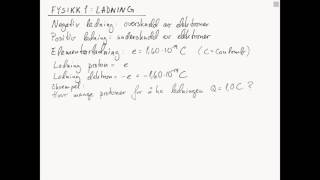 FYSIKK 1: LADNING
Negativ ladning: overskudd av elektroner
Positiv ladning: underskudd av elektroner
Elementarladning: e = 1,60·10⁻¹⁹ C (C = Coulomb)
Ladning proton = e
Ladning elektron = -e = -1,60·10⁻¹⁹ C
Eksempel:
Hvor mange protoner for å ha ladningen Q = 1,0 C ?